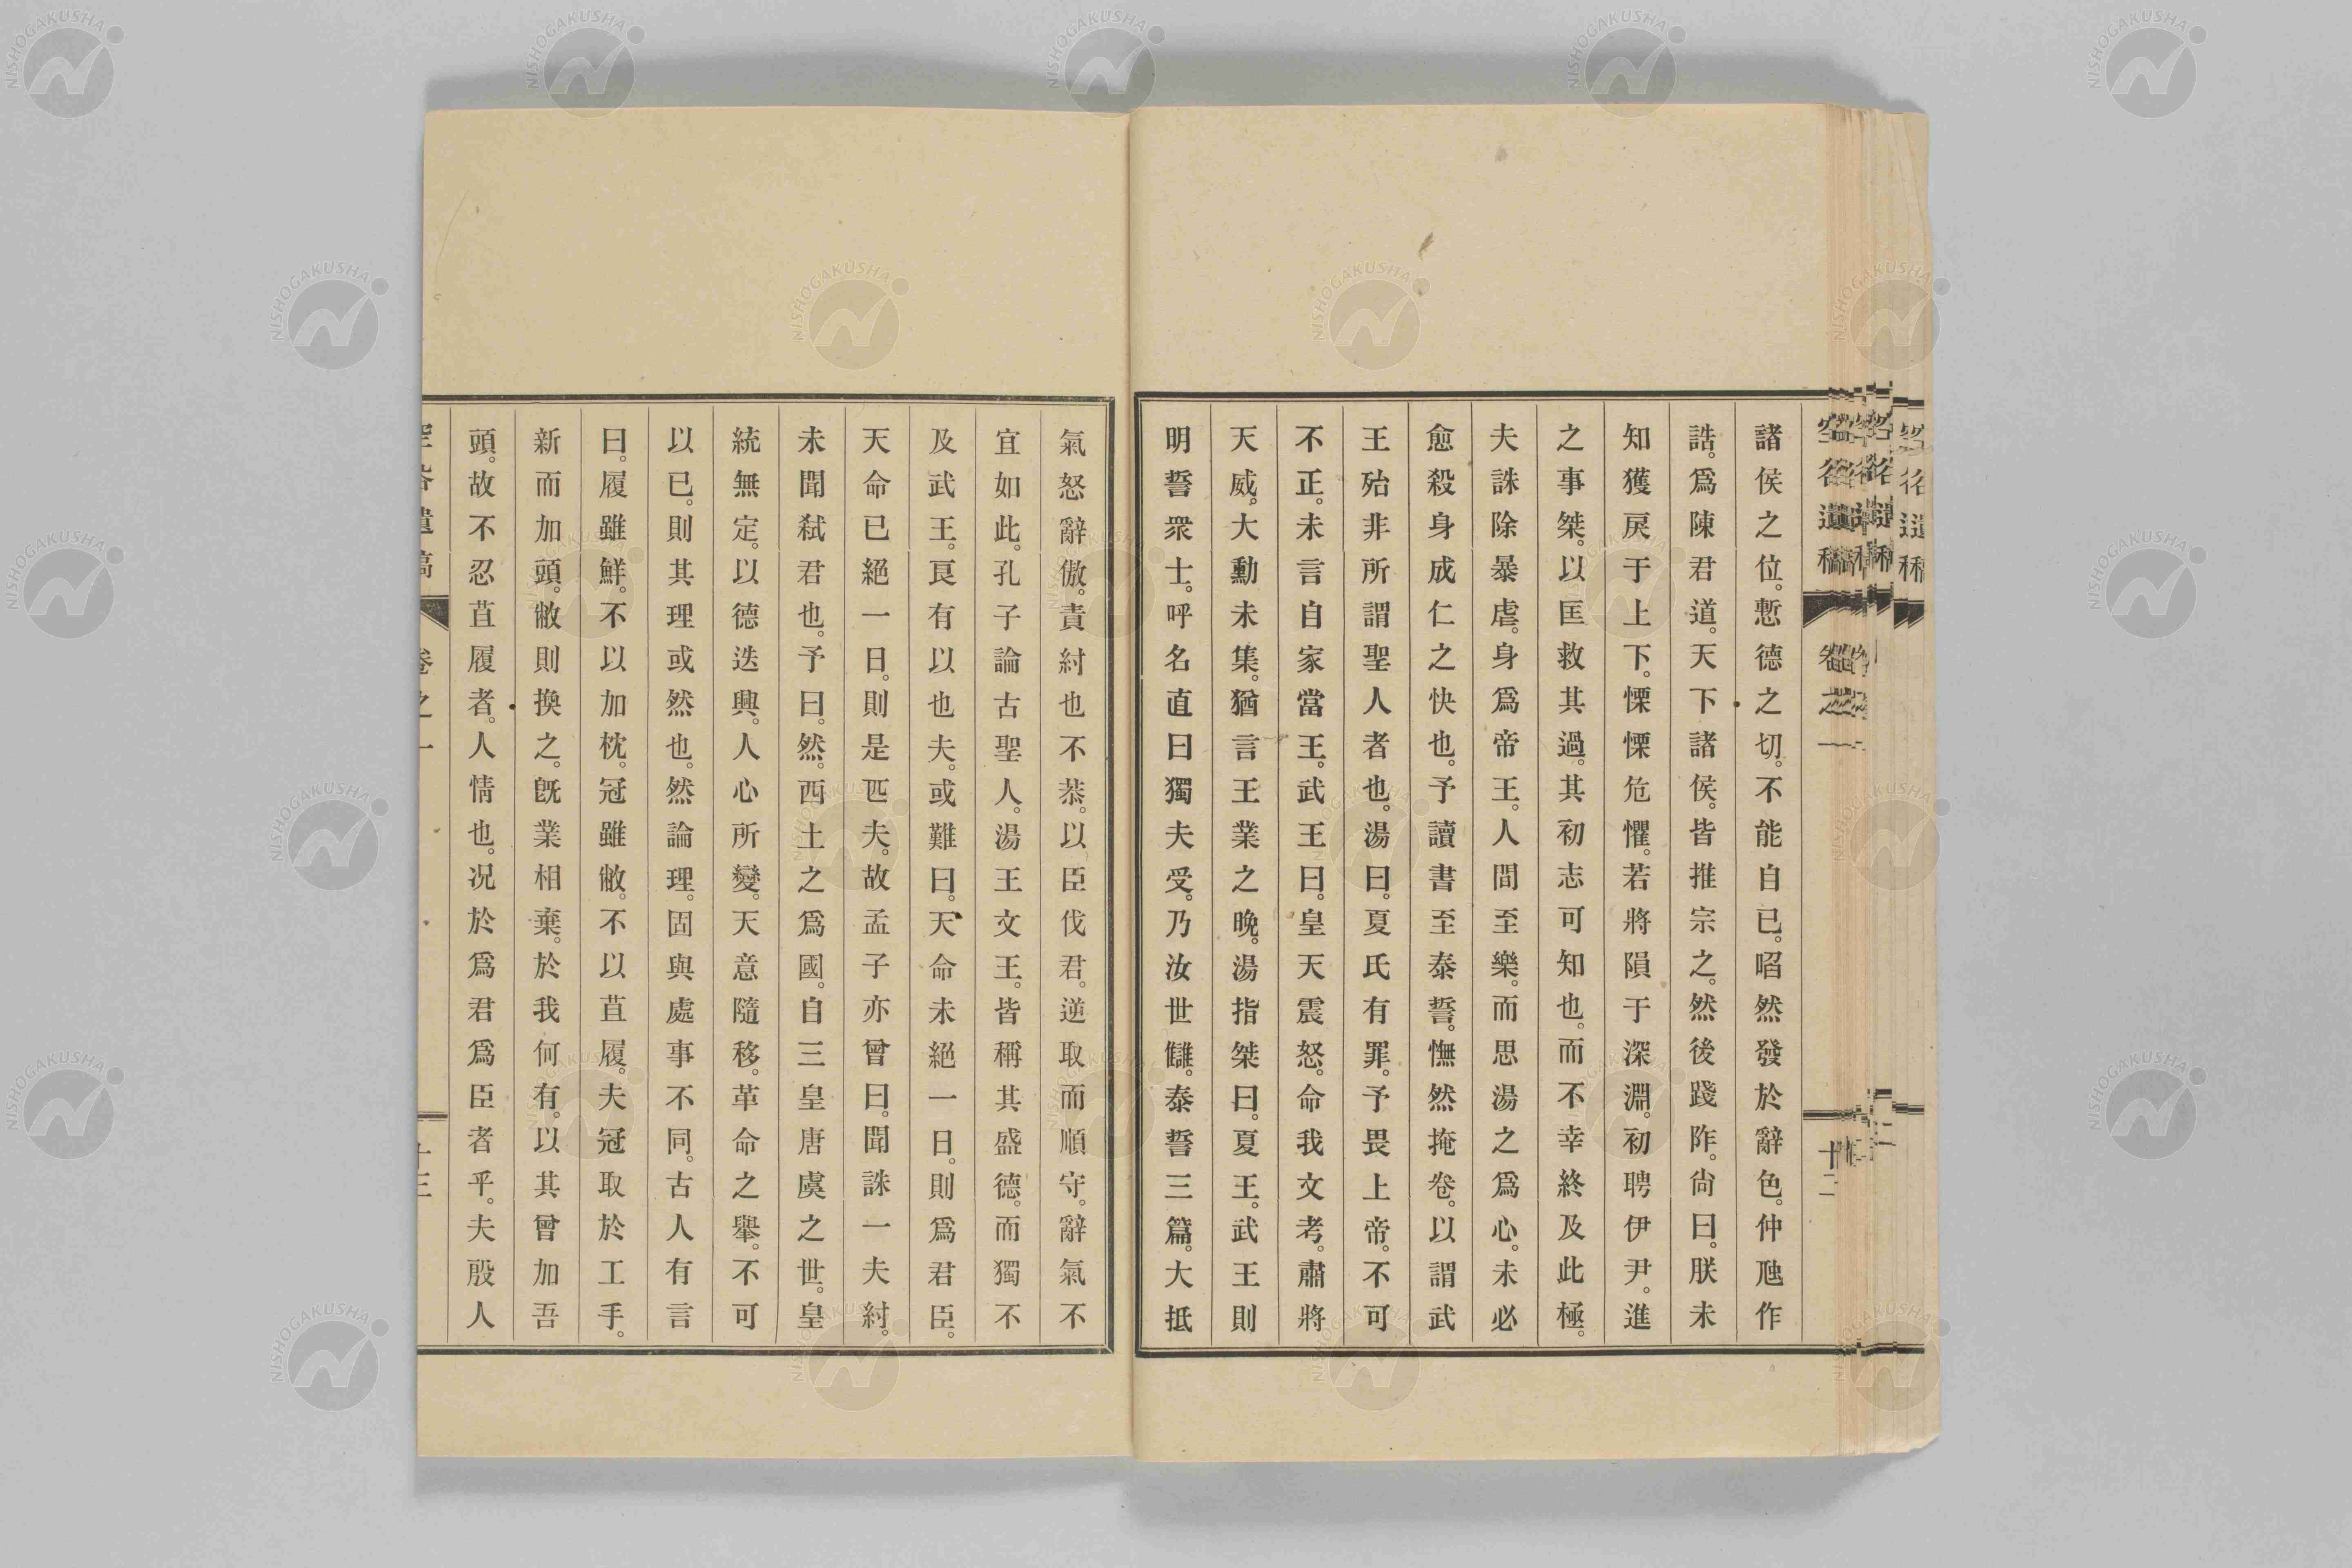 諸侯之位。慙德之切。不能自已。昭然發於辭色。仲虺作
誥。爲陳君道。天下諸侯。皆推宗之。然後踐阼。尙曰。朕未
知獲戾于上下。慄慄危懼。若將隕于深淵。初聘伊尹。進
之事桀。以匡救其過。其初志可知也。而不幸終及此極。
夫誅除暴虐。身爲帝王。人間至樂。而思湯之爲心。未必
愈殺身成仁之快也。予讀書至泰誓。憮然掩卷。以謂武
王殆非所謂聖人者也。湯曰。夏氏有罪。予畏上帝。不可
不正。未言自家當王。武王曰。皇天震怒。命我文考。肅將
天威。大勳未集。猶言王業之晩。湯指桀曰。夏王。武王則
明誓衆士。呼名直曰獨夫受。乃汝世讎。泰誓三篇。大抵
氣怒辭傲。責紂也不恭。以臣伐君。逆取而順守。辭氣不
宜如此。孔子論古聖人。湯王文王。皆稱其盛德。而獨不
及武王。良有以也夫。或難曰。天命未絕一日。則爲君臣。
天命已絕一日。則是匹夫。故孟子亦曾曰。聞誅一夫紂。
未聞弑君也。予曰。然。西土之爲國。自三皇唐虞之世。皇
統無定。以德迭興。人心所變。天意隨移。革命之擧。不可
以已。則其理或然也。然論理。固與處事不同。古人有言
曰。履雖鮮。不以加枕。冠雖敝。不以苴履。夫冠取於工手。
新而加頭。敝則換之。旣業相棄。於我何有。以其曾加吾
頭。故不忍苴履者。人情也。况於爲君爲臣者乎。夫殷人
空谷遺稿 卷之一 十三
NISHOGAKUSHA